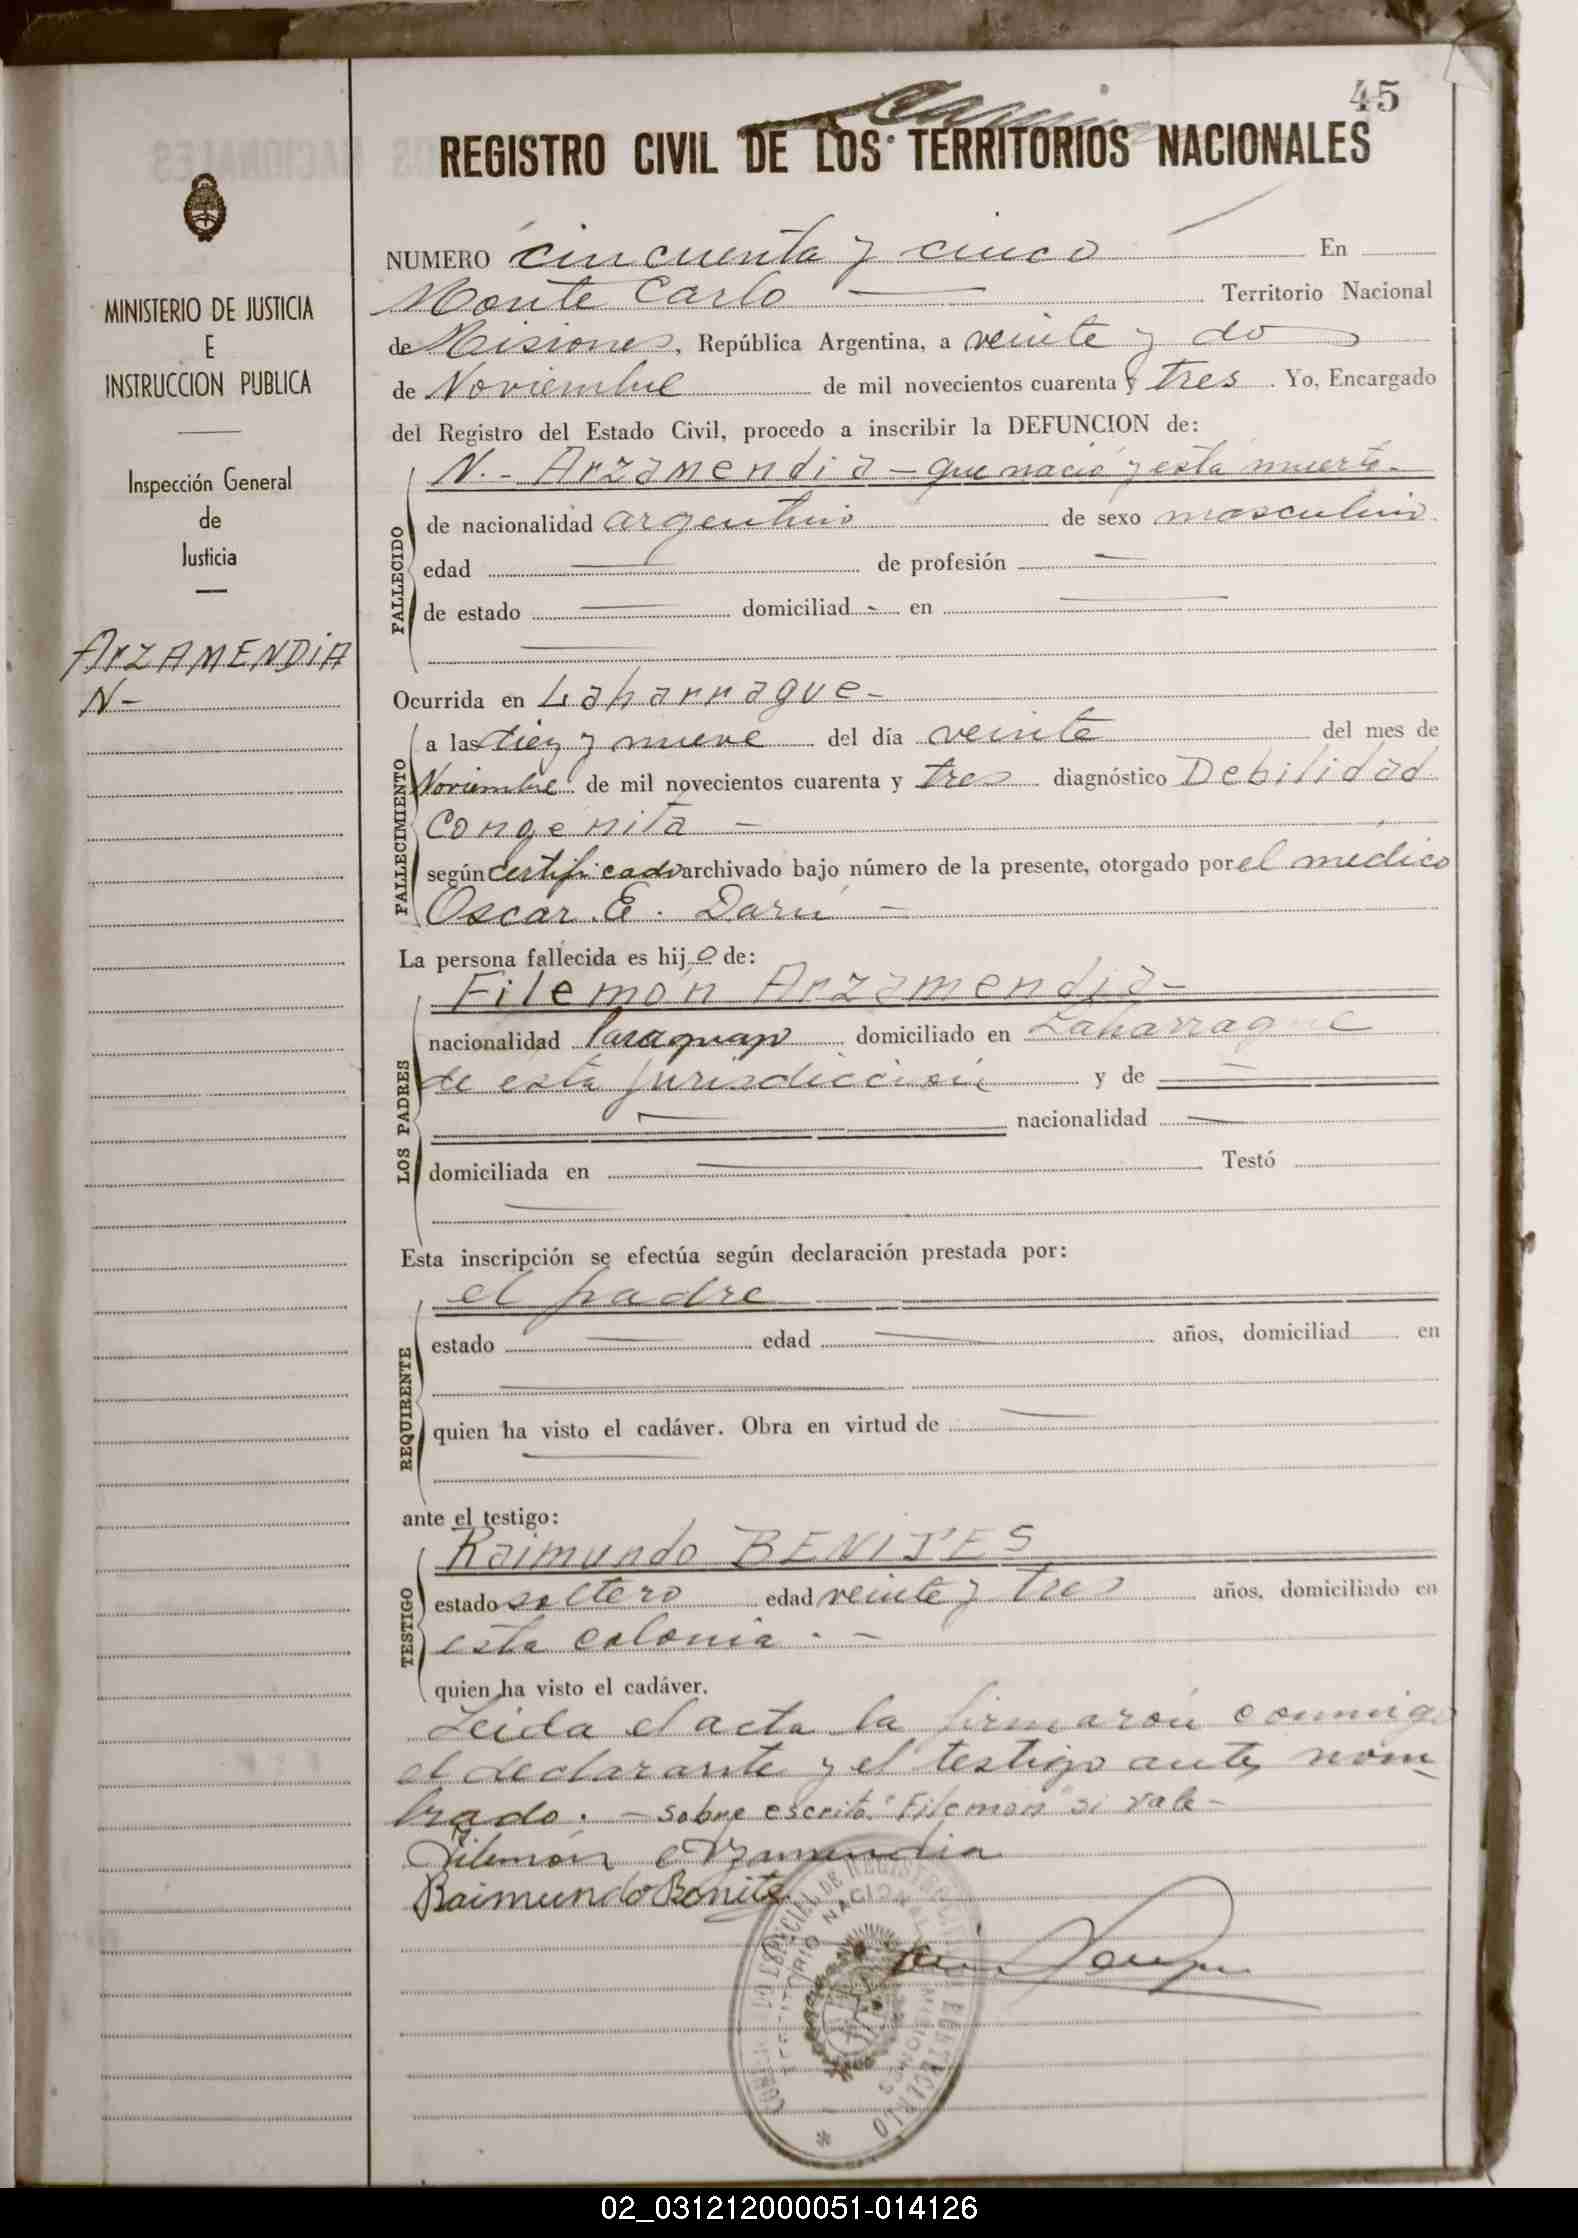 45
REGISTRO CIVIL DE LOS TERRITORIOS NACIONALES
MINISTERIO DE JUSTICIA
E
INSTRUCCION PUBLICA
Inspección General
de
Justicia
ArZAMENDiA
N-
NUMERO cincuenta y cinco En
Monte Carlo Territorio Nacional
de Misiones, República Argentina, a veinte y do
de Noviembre de mil novecientos cuarenta y tres. Yo, Encargado
del Registro del Estado Civil, procedo a inscribir la DEFUNCION de:
FALLECIDO
N.- Arzamendia - que nació y esta muerto.-
de nacionalidad argentino de sexo masculino.
edad — de profesión —
de estado — domiciliad - en —
—
Ocurrida en Laharrague-
FALLECIMIENTO
a las diez y nueve del día veinte del mes de
Noviembre de mil novecientos cuarenta y tres diagnóstico Debilidad
Congenita -
según certificado archivado bajo número de la presente, otorgado por el médico
Oscar E. Darú -
La persona fallecida es hijo de:
LOS PADRES
Filemón Arzamendia-
nacionalidad Paraguayo domiciliado en Laharrague
de esta jurisdicción y de —
— nacionalidad —
domiciliada en — Testó
—
Esta inscripción se efectúa según declaración prestada por:
REQUIRENTE
el padre
estado — edad — años, domiciliad en
—
quien ha visto el cadáver. Obra en virtud de —
—
ante el testigo:
TESTIGO
Raimundo BENITES
estado soltero edad veinte y tres años, domiciliado en
esta colonia. -
quien ha visto el cadáver.
Leida el acta la firmarón conmigo
el declarante y el testigo antes nom-
brado. - sobre escrito "Filemon" si vale -
Filemón Arzamendia
Raimundo Benitez
REGISTRO CIVIL
TERRITORIO NACIONAL
MISIONES
MONTECARLO
02_031212000051-014126